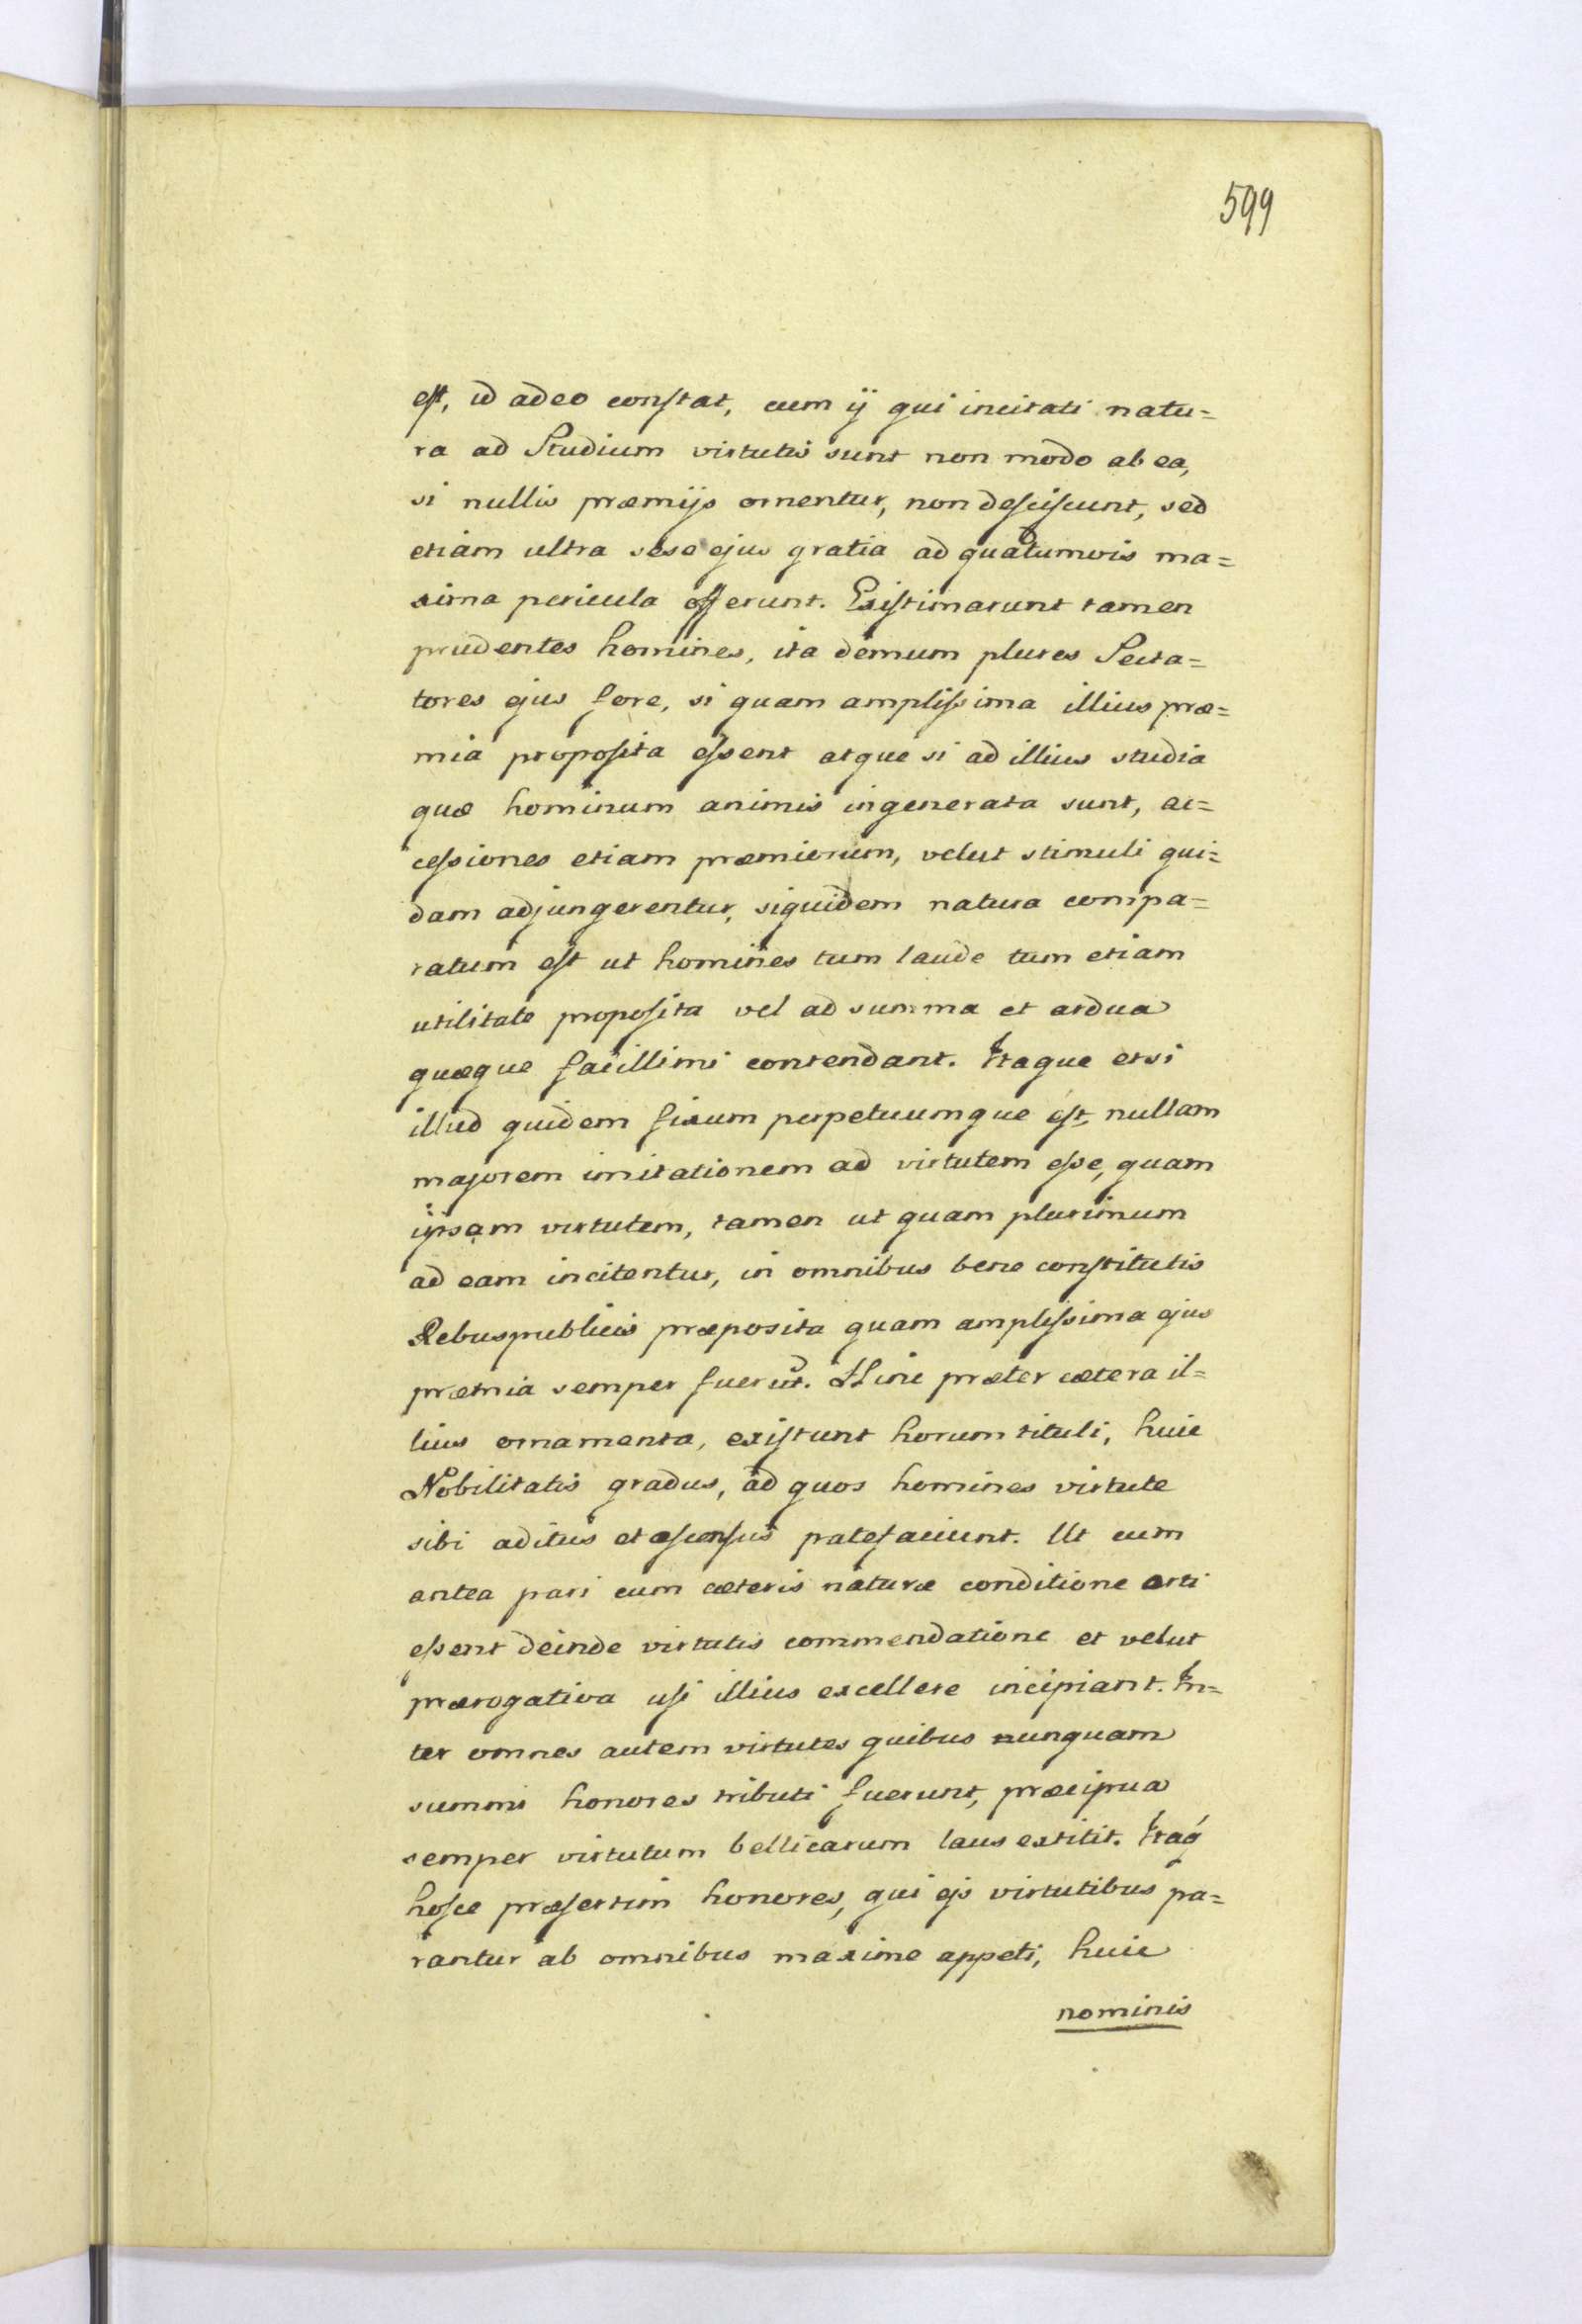 599
est, id adeo constat, cum ij qui incitati natu=
ra ad Studium virtutis sunt non modo ab ea,
si nullis præmijs ornentur, non desciscunt, sed
etiam ultra sese ejus gratia ad quātumvis ma=
xima pericula offerunt. Existimarunt tamen
prudentes homines, ita demum plures Secta=
tores ejus fore, si quam amplissima illius præ=
mia proposita essent atque si ad illius studia
quæ hominum animis ingenerata sunt, ac=
cessiones etiam præmiorum, velut stimuli qui=
dam adjungerentur, siquidem natura compa=
ratum est ut homines tum laude tum etiam
utilitate proposita vel ad summa et ardua
quæque facillimi contendant. Itaque etsi
illud quidem fixum perpetuumque est, nullam
majorem imitationem ad virtutem esse, quam
ipsam virtutem, tamen ut quam plurimum
ad eam incitentur, in omnibus bene constitutis
Rebuspublicis præposita quam amplissima ejus
præmia semper fuerūt. Hinc præter cætera il=
lius ornamenta, existunt horum tituli, huic
Nobilitatis gradus, ad quos homines virtute
sibi aditus et ascensus patefaciunt. Ut cum
antea pari cum cæteris naturæ conditione orti
essent deinde virtutis commendatione et velut
prærogativa usi illius excellere incipiant. In=
ter omnes autem virtutes quibus nunquam
summi honores tributi fuerunt, præcipua
semper virtutum bellicarum laus extitit. Itaq́
hosce præsertim honores, qui ejs virtutibus pa=
rantur ab omnibus maxime appeti, huic
nominis